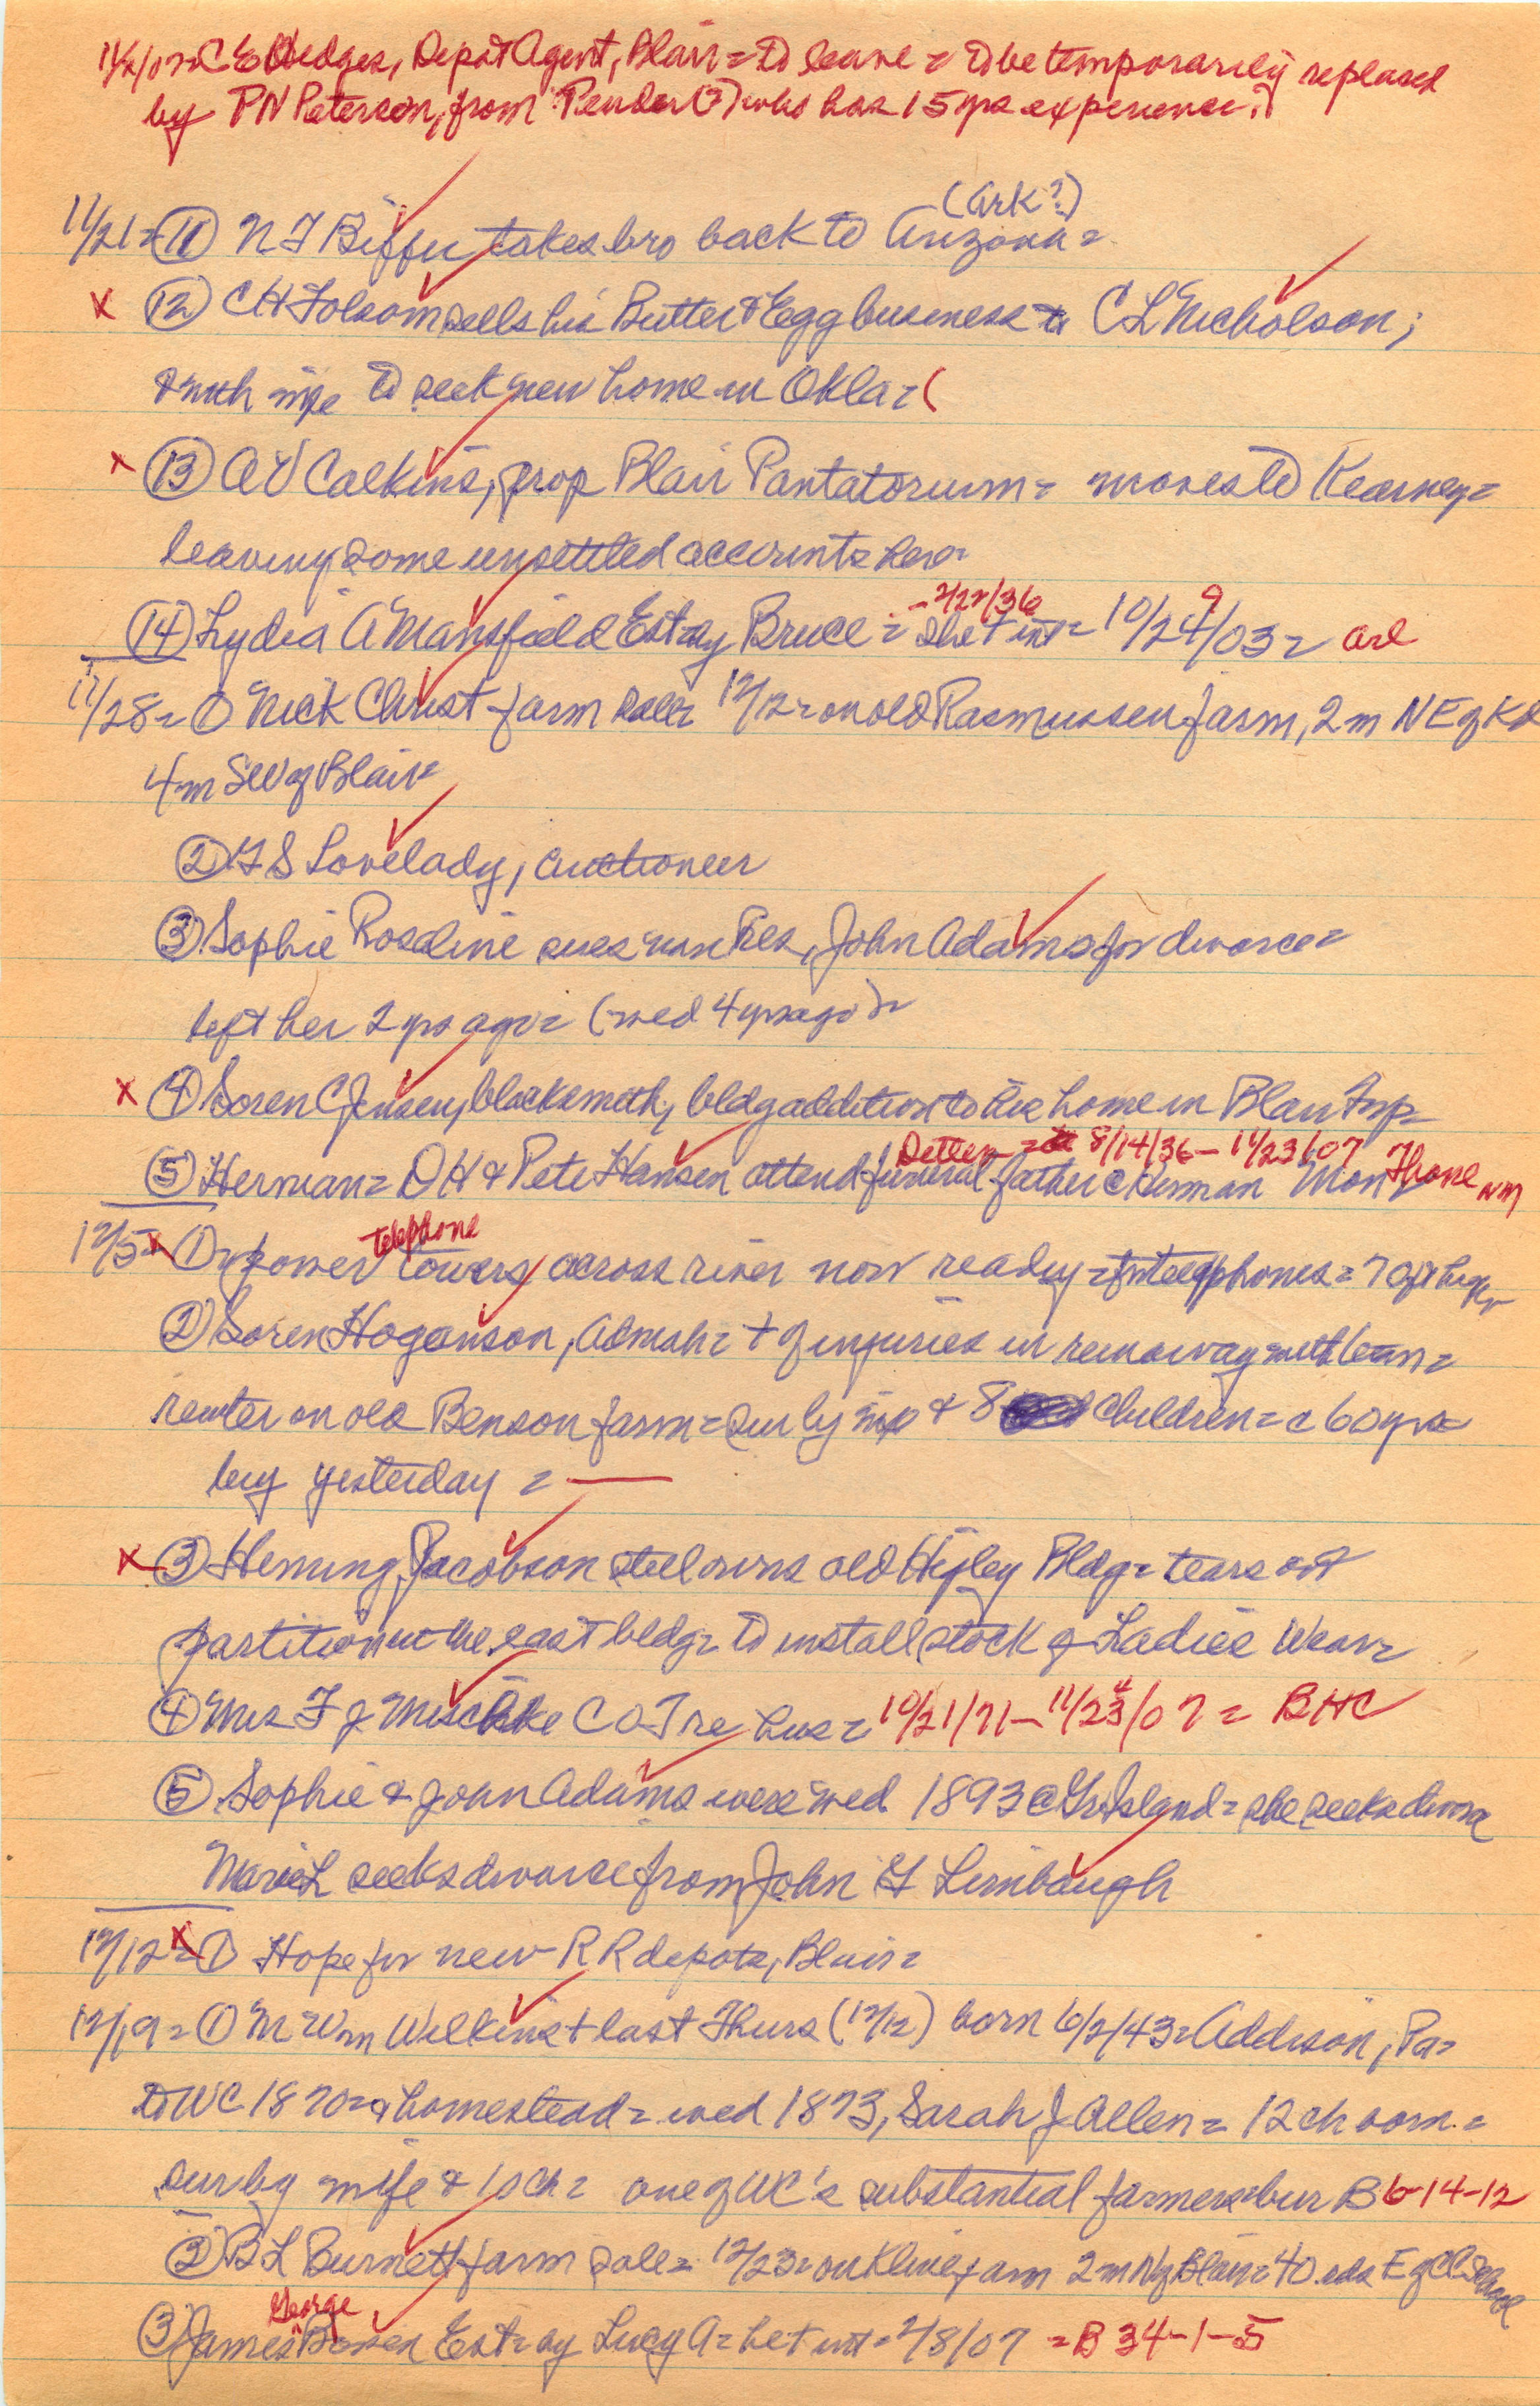 11/21/07=C E Hedges, Depot Agent, Blair = To leave = to be temporarily replaced
by P N Peterson, from Pender (?) who has 15 yrs experience.
(Ark?)
11/21= (11) N F takes bro back to Arizona=
x (12) C H Folsom sells his Butter & Egg business to C L Nicholson;
& with wife to seek new home in Okla= (
x (13) A V Calkins, prop Blair Pantatorium = moves to Kearney=
leaving some unsettled accounts here
- 2/22/36 9
(14) Lydia A Mansfield Est= ay Bruce = she † int= 10/24/03=
11/28= (1) Nick Christ farm sale= 12/12= on old Rasmussen farm, 2 m NE of
4 m SW of Blair=
(2) G S Lovelady, auctioneer
(3) Sophie Rosaline sues non Res, John Adams for divorce=
left her 2 yrs ago= (wed 4 yrs ago)=
x (4) Soren C Jensen, blacksmith, bldg addition to his home in Blair
Detlem 8/14/36 – 11/23/07
(5) Herman= D H & Pete Hansen attend funeral father @ Herman Mon
telephone
12/5= x (1) power towers across river now ready= for telephones= 70 ft
(2) Soren Hoganson, Admah= † of injuries in runaway with team=
renter on old Benson farm= sur by wife & 8 children= c 60 yrs=
bur yesterday = —
x (3) Heming Jacobson still owns old Higley Bldg= tears out
partition in the east bldg= to install stock of Ladies Wear=
(4) Mrs F J Mischke C O T re hus= 10/21/71 – 11/23/07 = BHC
(5) Sophie & John Adams were wed 1893 @ Gr Island= she seeks divorce
Marie L seeks divorce from John G Limbaugh
12/12= x (1) Hope for new R R depots, Blair=
12/19= (1) M Wm Wilkins † last Thurs (12/12) born 6/2/43= Addison, Pa=
to WC 1870= homestead= wed 1873, Sarah J Allen= 12 ch born=
sur by wife & 10 ch= one of WC's substantial farmers= bur B 6-14-12
(2) B L Burnett farm sale= 12/23= on Kline farm 2 m N of Blair= 40 rds E of School
George
(3) James Est= ay Lucy A= he † int= 2/8/07 = B 34-1-5